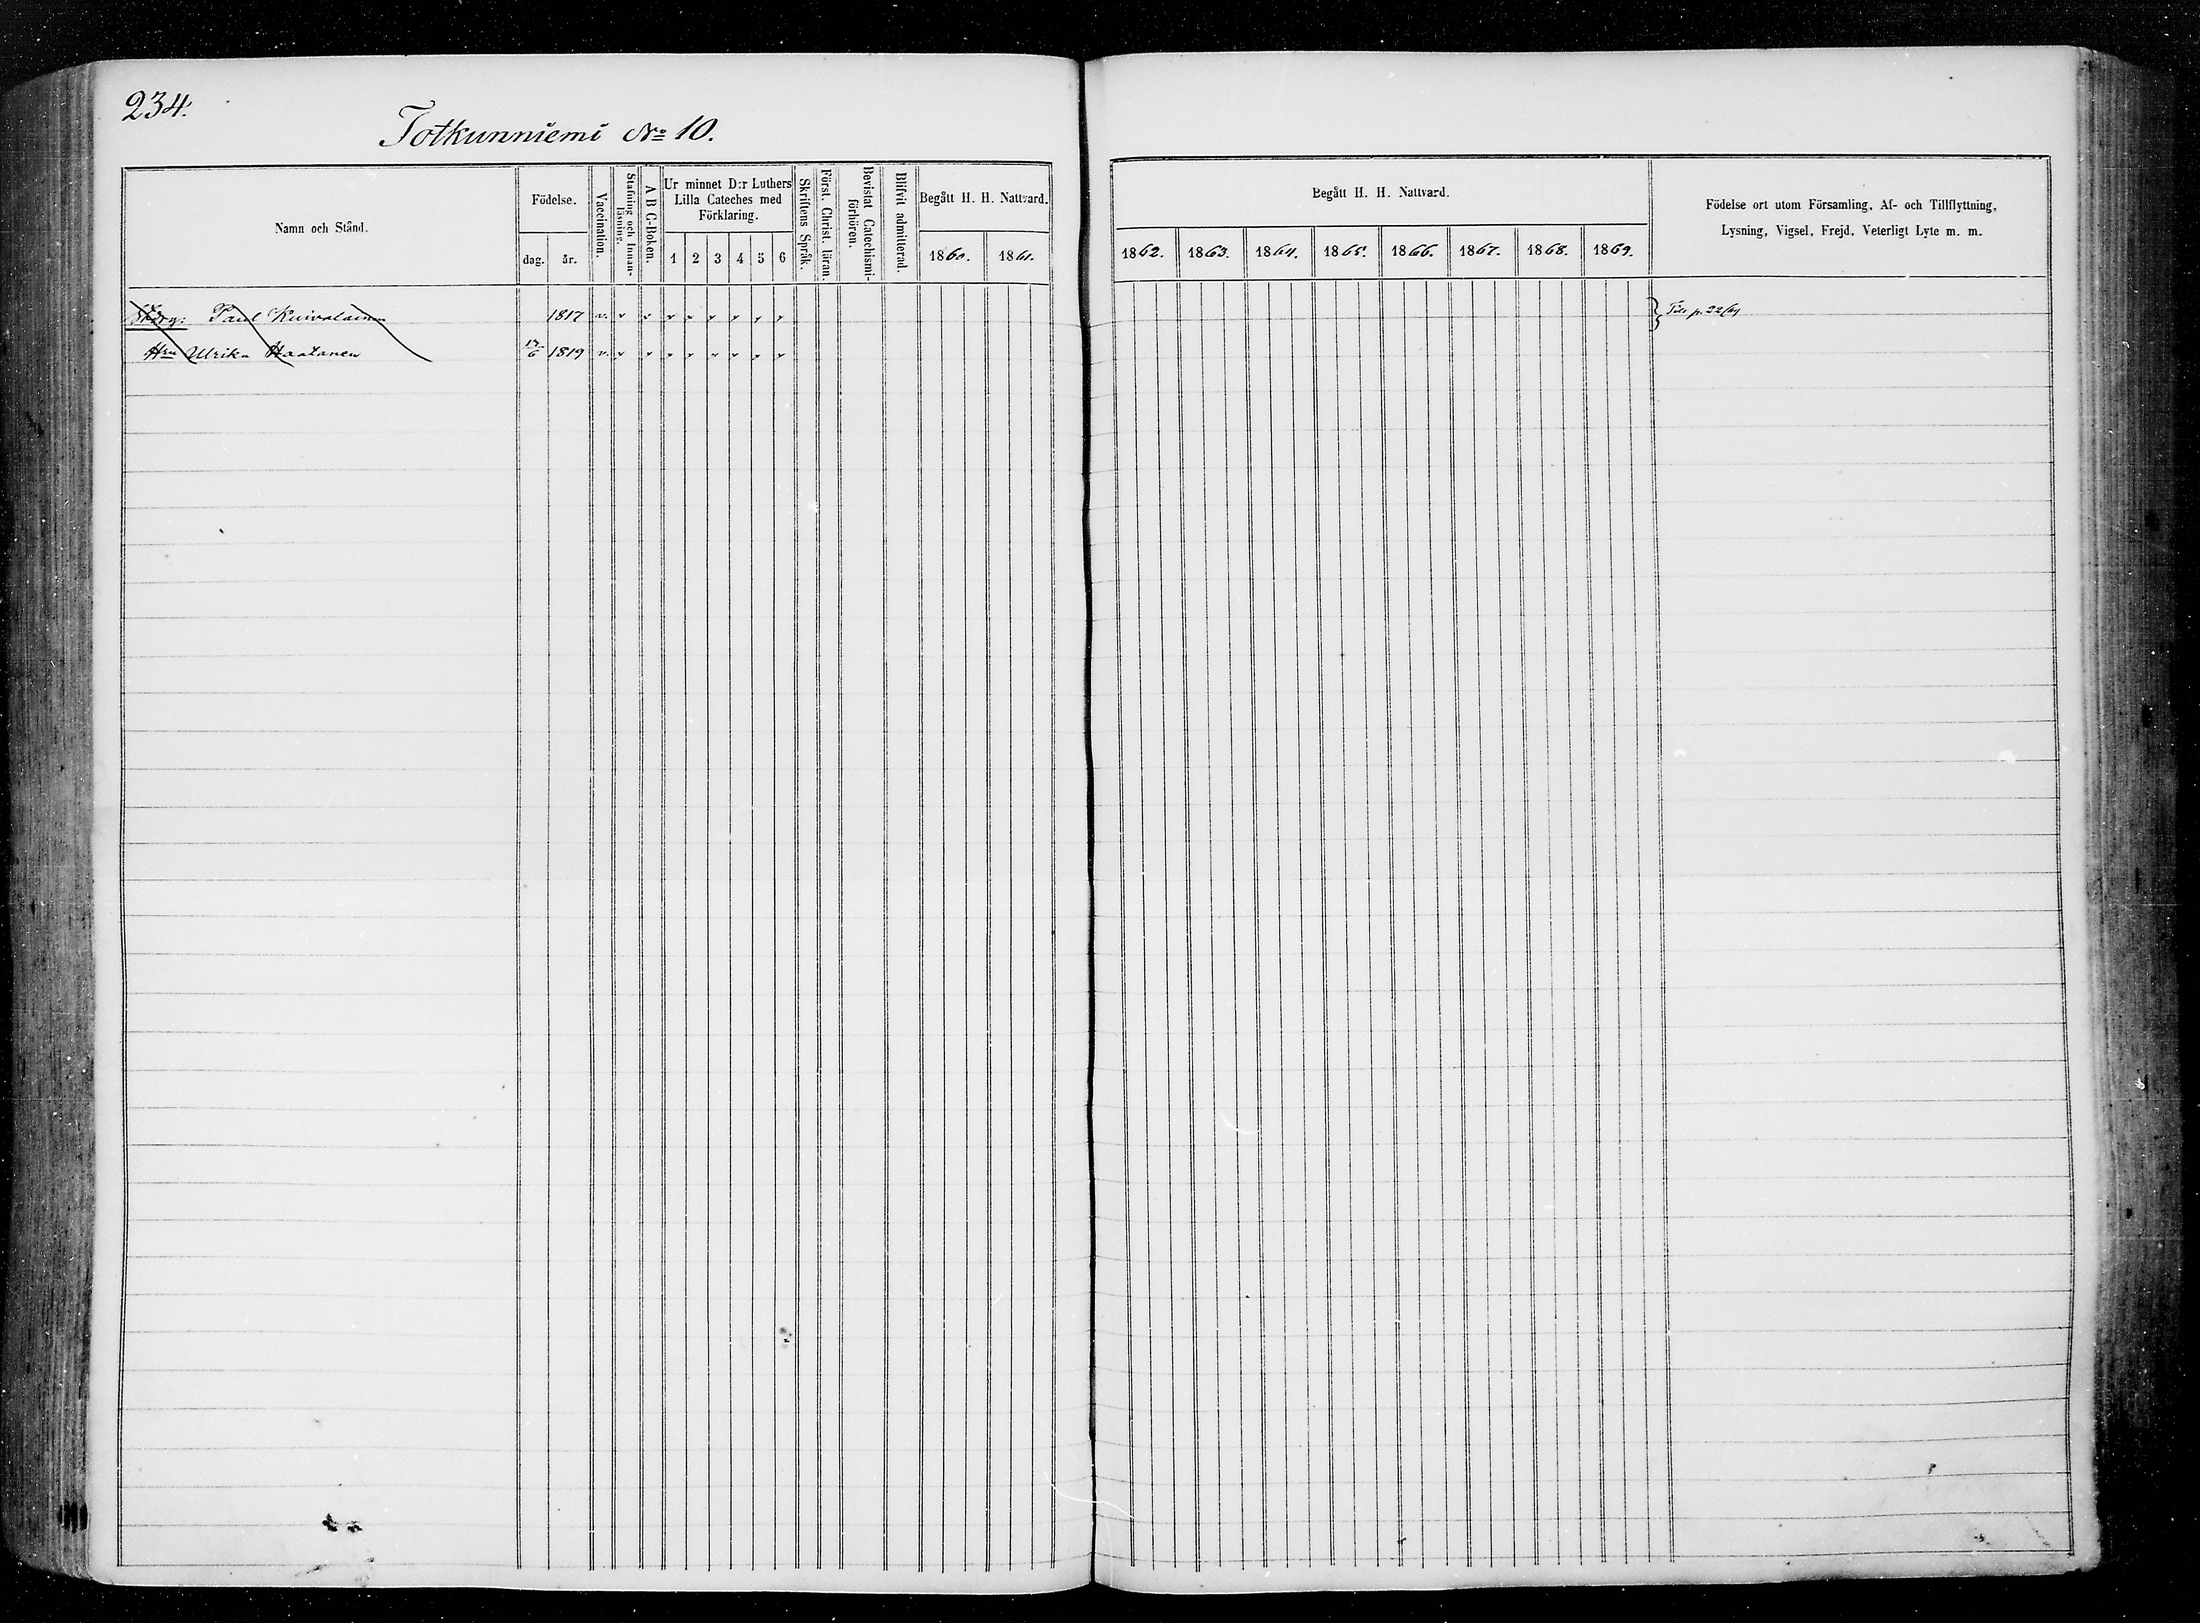 234.
Totkunniemi No 10.
Namn och Stånd.
Födelse.
dag.
år.
Vaccination.
Stafning och Innan-
läsning.
A B C-Boken.
Ur minnet D:r Luthers
Lilla Cateches med
Förklaring.
1 2 3 4 5 6
Skriftens Språk.
Först. Christ. läran.
Bevistat Catechismi-
förhören.
Blifvit admitterad.
Begått H. H. Nattvard.
1860. 1861.
Begått H. H. Nattvard.
1862. 1863. 1864. 1865. 1866. 1867. 1868. 1869.
Födelse ort utom Församling, Af- och Tillflyttning,
Lysning, Vigsel, Frejd, Veterligt Lyte m. m.
Paul Kuivalainen 1817 v. v v v v v v v v
p. 22/
Hru Ulrika Haatanen 17/6 1819 v. v v v v v v v v